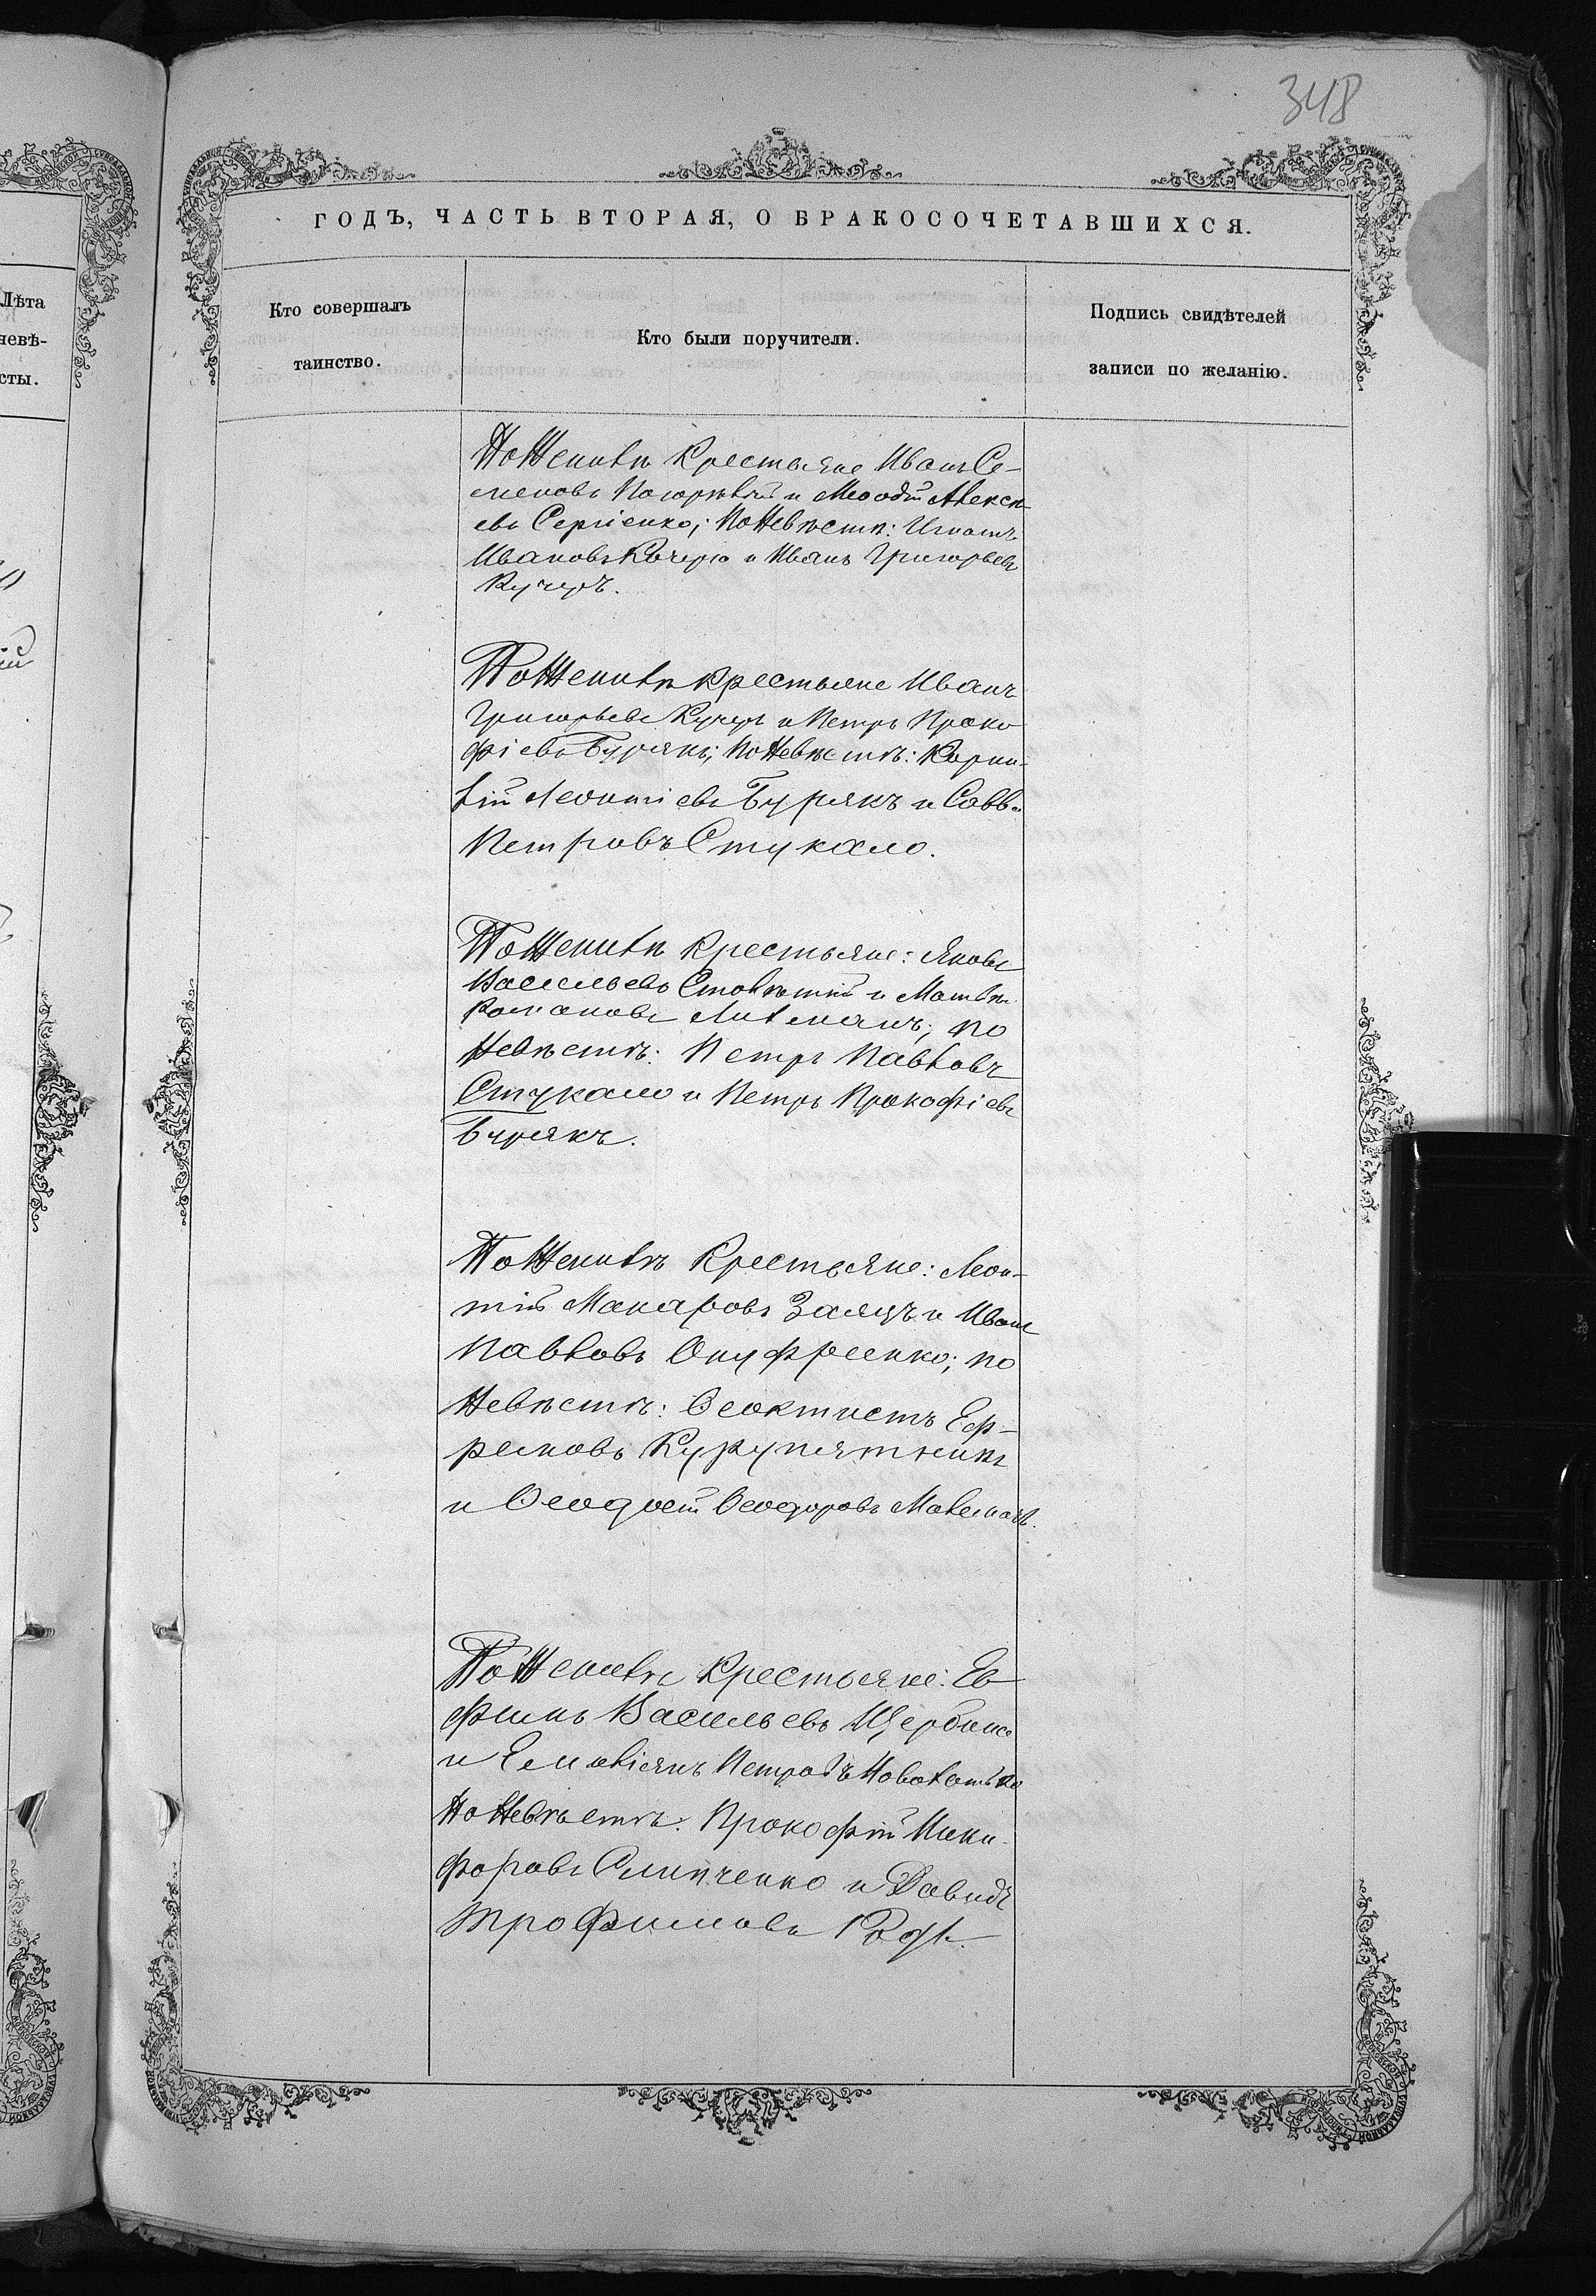 348
ГОДЪ, ЧАСТЬ ВТОРАЯ, О БРАКОСОЧЕТАВШИХСЯ.
Лѣта
невѣ-
сты.
Кто совершалъ
таинство.
Кто были поручители.
Подпись свидѣтелей
записи по желанію.
По Женихѣ Крестьяне Иванъ Се-
меновъ Погорѣлый и Алексѣ-
евъ Сергіенко; По Невѣстѣ: Игнатъ
Ивановъ и Иванъ Григорьевъ
Кучеръ.
По Женихѣ Крестьяне Иванъ
Григорьевъ Кучеръ и Петръ Проко
фіевъ Бурякъ; По Невѣстѣ: Корни-
лій Леонтіевъ Бурякъ и Савва
Петровъ Стукало.
По Женихѣ Крестьяне: Яковъ
Васильевъ Столѣтній и
Романовъ Литманъ; по
Невѣстѣ: Петръ Павловъ
Стукало и Петръ Прокофіевъ
Бурякъ.
По Женихѣ Крестьяне: Леон-
тій Макаровъ Заяцъ и Иванъ
Павловъ Онуфреенко; по
Невѣстѣ: Ѳеоктистъ Еф-
ремовъ Курупятникъ
и Ѳеодосій Ѳеодоровъ
По Женихѣ Крестьяне: Ев
фимъ Васильевъ Щербина
и Емиліянъ Петровъ
По Невѣстѣ: Прокофій Ники
форовъ Слипченко и Давидъ
Трофимовъ